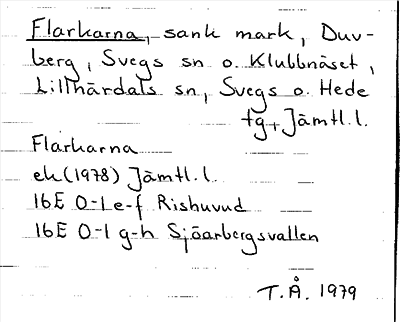 Flarkarna, sank mark, Duv-
berg, Svegs sn o. Klubbnäset,
Lillhärdals sn, Svegs o. Hede
tg, Jämtl. l.
Flarkarna
ek (1978) Jämtl. l.
16E 0-1 e-f Rishuvud
16E 0-1 g-h Sjöarbergsvallen
T.Å. 1979